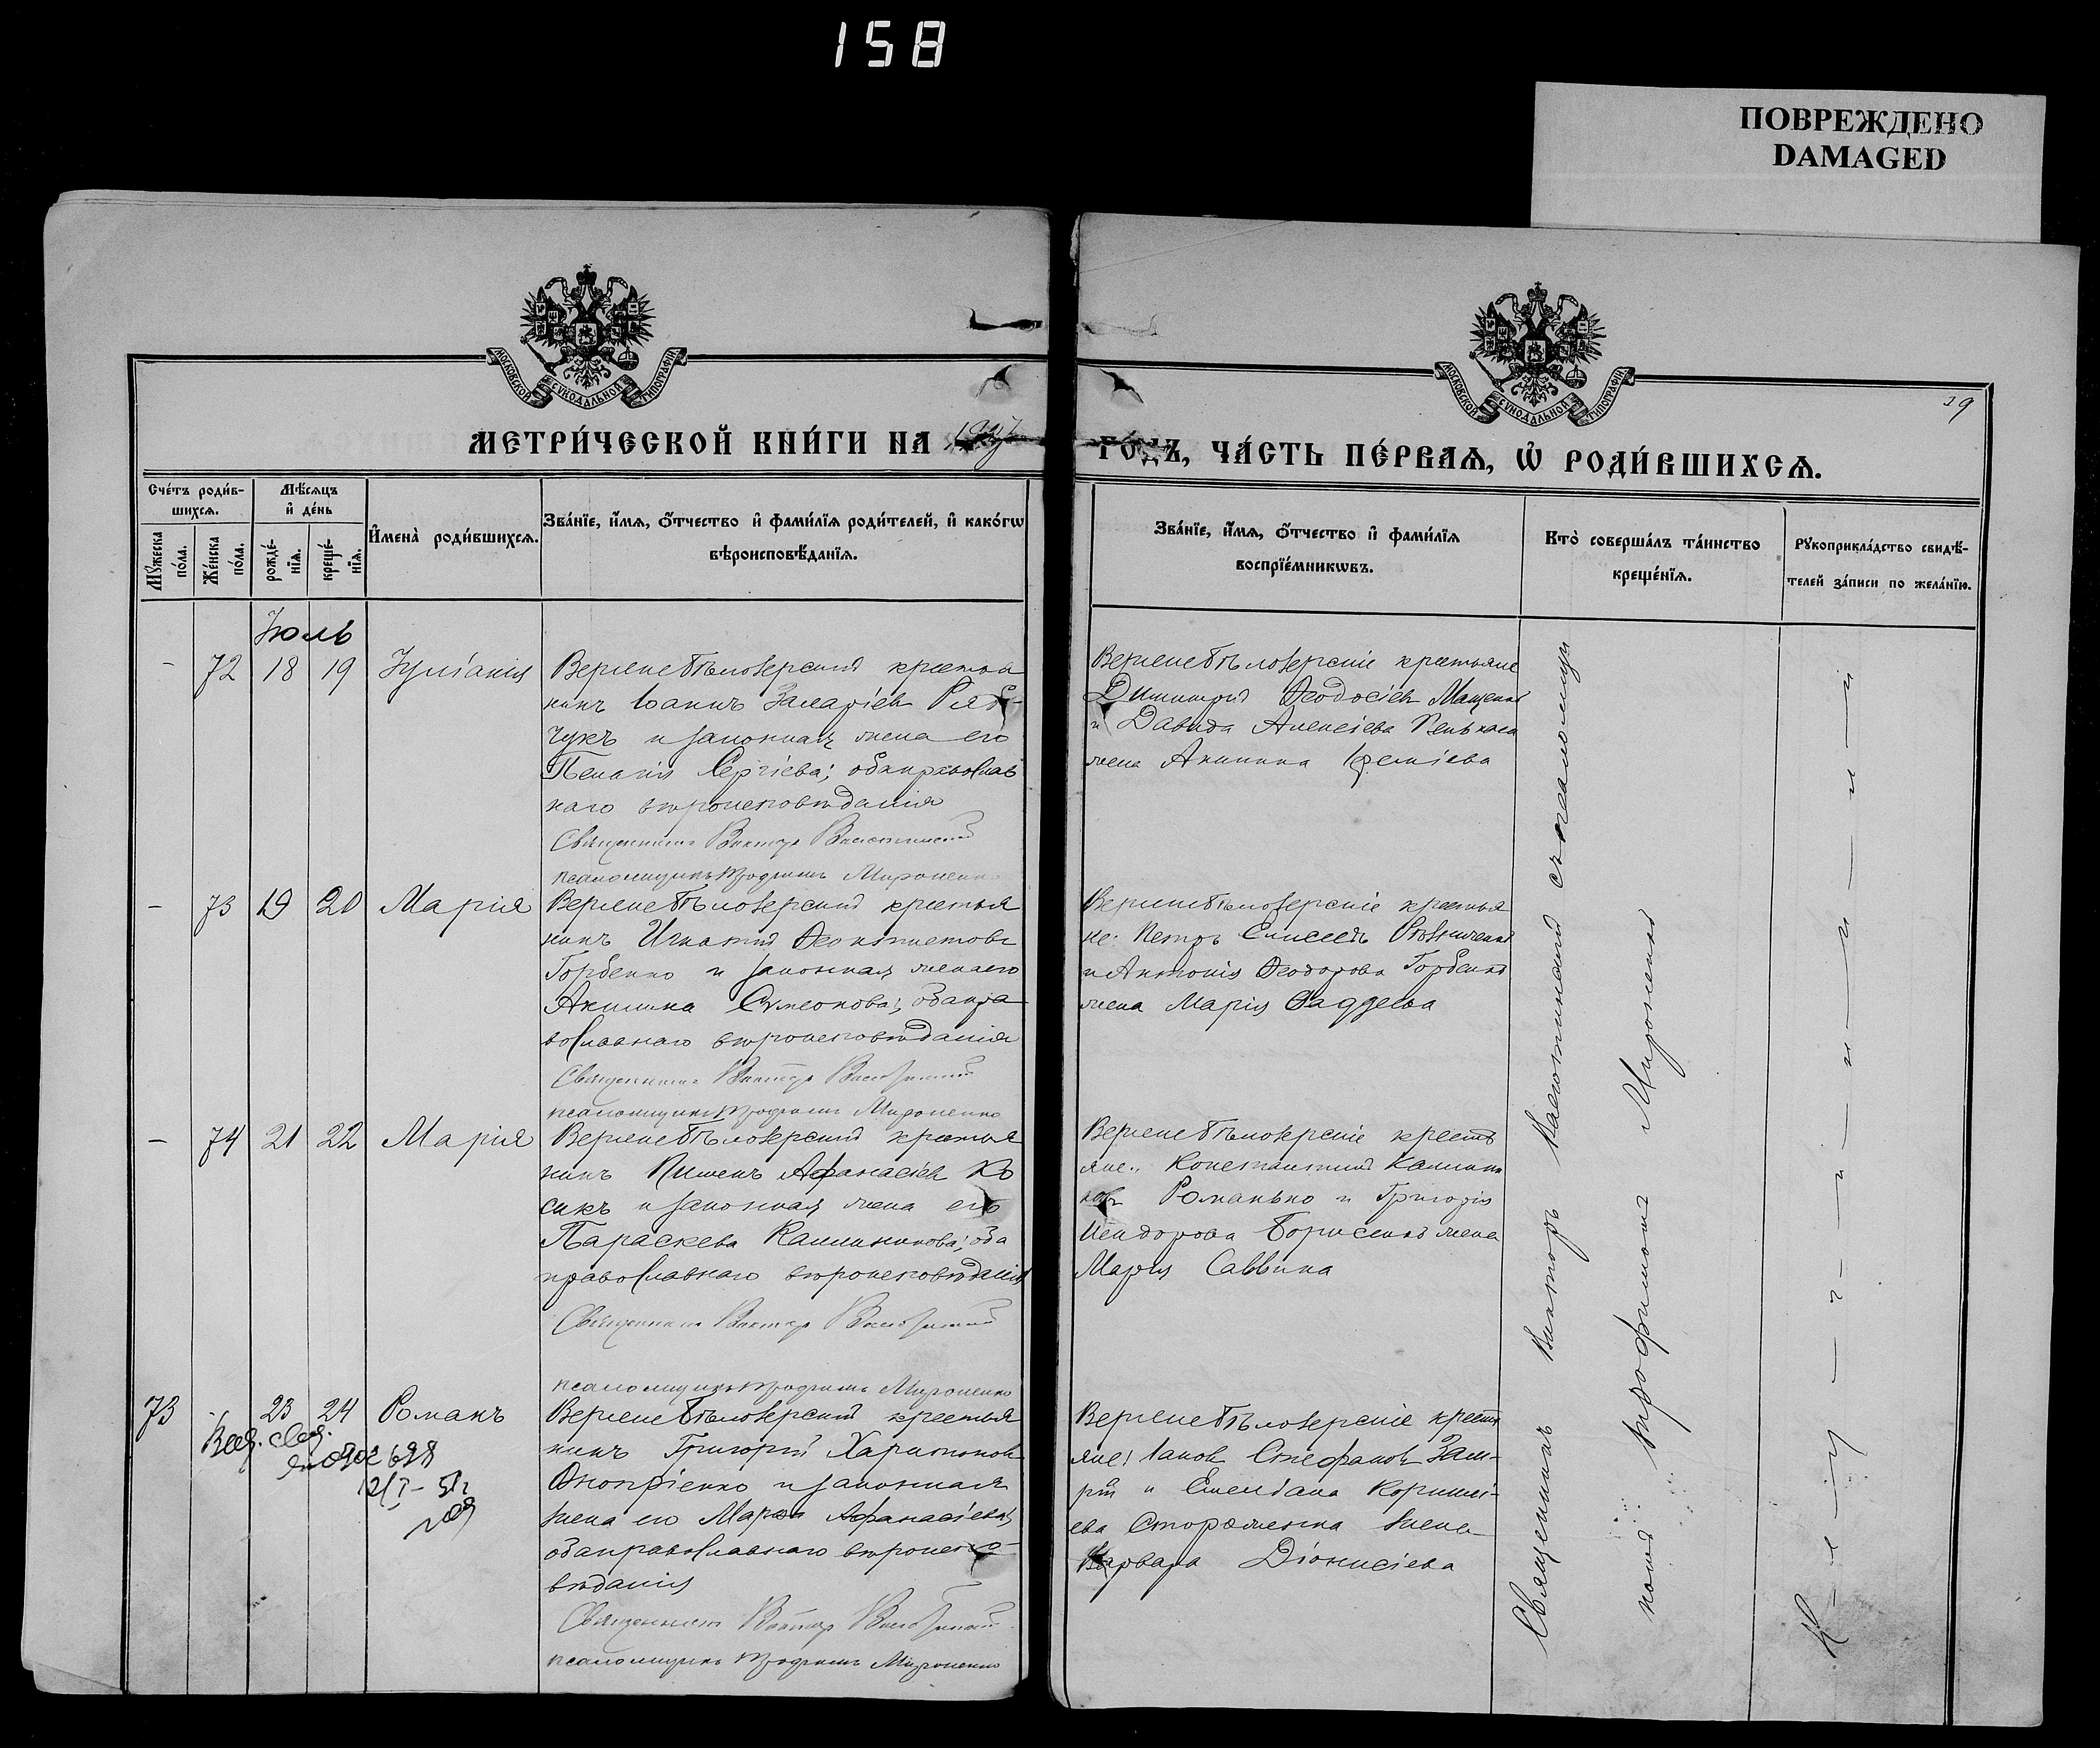 158
ПОВРЕЖДЕНО
DAMAGED
МОСКОВСКОЙ СѴНОДАЛЬНОЙ ТИПОГРАФІИ
МОСКОВСКОЙ СѴНОДАЛЬНОЙ ТИПОГРАФІИ
39
МЕТРИ́ЧЕСКОЙ КНИ́ГИ НА
ГО́ДЪ, ЧА́СТЬ ПЕ́РВАѦ, Ѡ РОДИ́ВШИХСѦ.
Сче́тъ роди́в-
шихсѧ.
Мѣ́сѧцъ
и҆ де́нь
Мꙋ́жеска
по́ла.
Же́нска
по́ла.
рожде́-
нїѧ.
креще́-
нїѧ.
И҆мена̀ роди́вшихсѧ.
Зва́нїе, и҆́мѧ, ѻ҆́тчество и҆ фами́лїѧ роди́телей, и҆ како́гѡ
вѣроисповѣ́данїѧ.
Зва́нїе, и҆́мѧ, ѻ҆́тчество и҆ фами́лїѧ
воспрїе́мникѡвъ.
Кто̀ соверша́лъ та́инство
креще́нїѧ.
Рꙋкоприкла́дство свидѣ́-
телей за́писи по жела́нїю.
Іюль
- 72 18 19 Іуліанія
Верхнебѣлозерскій крестья
нинъ Іоаннъ Захаріевъ Ряб-
чукъ и законная жена его
Пелагія Сергіева; оба православ
наго вѣроисповѣданія
Священникъ Викторъ
псаломщикъ Трофимъ Мироненко
Верхнебѣлозерскіе крестьяне
Димитрій Ѳеодосіевъ Мащенко
и Давида Алексіева Пенькова
жена Акилина
- 73 19 20 Марія
Верхнебѣлозерскій крестья
нинъ Игнатій Ѳеоктистовъ
Горбенко и законная жена его
Акилина Сѵмеонова; оба пра
вославнаго вѣроисповѣданія
Священникъ Викторъ
псаломщикъ Трофимъ Мироненко
Верхнебѣлозерскіе крестья
не: Петръ Елисеевъ
и Антонія Ѳеодорова Горбенко
жена Марія Ѳаддеева
- 74 21 22 Марія
Верхнебѣлозерскій крестья
нинъ Пименъ Аѳанасіевъ Ко
сикъ и законная жена его
Параскева Каллиникова; оба
православнаго вѣроисповѣданія
Священникъ Викторъ
псаломщикъ Трофимъ Мироненко
Верхнебѣлозерскіе кресть
яне: Константинъ Каллини
ковъ Романько и Григорія
Исидорова Борисенко жена
Марія Саввина
73 - 23 24 Романъ
Верхнебѣлозерскій крестья
нинъ Григорій Харитоновъ
Оноприенко и законная
жена его Марія Аѳанасіева;
оба православнаго вѣроиспо-
вѣданія
Священникъ Викторъ
псаломщикъ Трофимъ Мироненко
Верхнебѣлозерскіе крестья
яне: Іаковъ Стефановъ Зам-
рій и Емеліана Корнилі-
ева Стороженка жена
Варвара Діонисіева
Священникъ Викторъ съ псаломщи
комъ Трофимомъ Мироненко